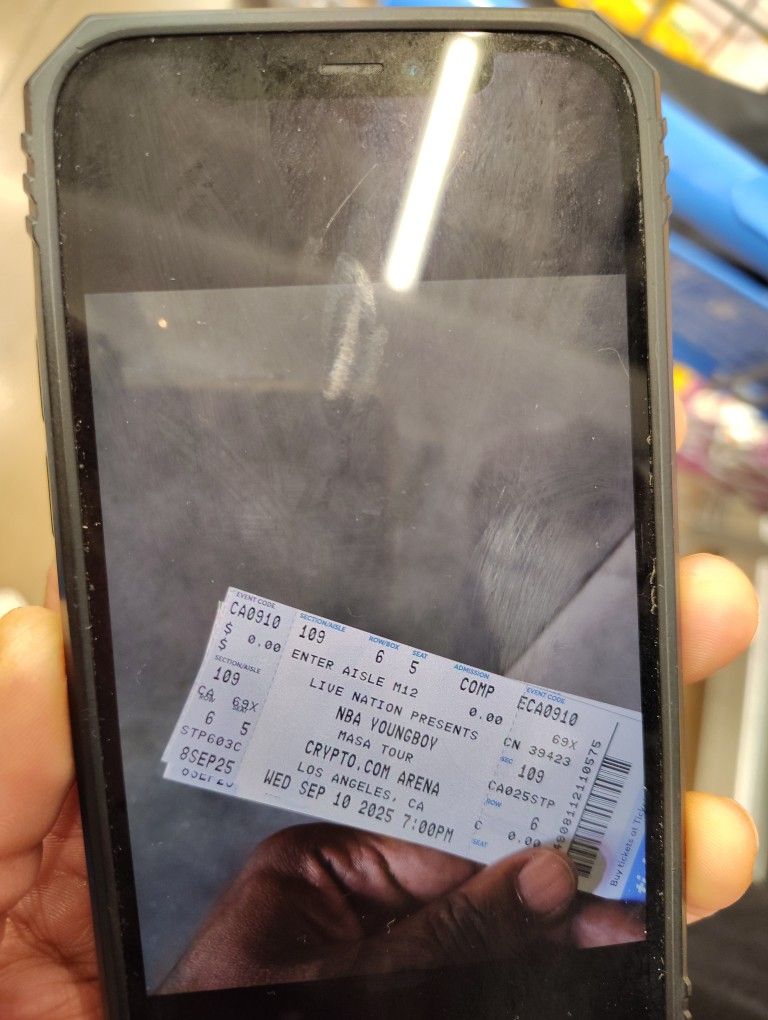 EVENT CODE
CA0910
$ 0.00
$
SECTION/AISLE
109
CA 69X
ROW SEAT
6 5
STP603C
8SEP25
8SEP25
SECTION/AISLE ROW/BOX SEAT ADMISSION
109 6 5 COMP
ENTER AISLE M12 0.00
LIVE NATION PRESENTS
NBA YOUNGBOY
MASA TOUR
CRYPTO.COM ARENA
LOS ANGELES, CA
WED SEP 10 2025 7:00PM
EVENT CODE
ECA0910
69X
CN 39423
SEC
109
CA025STP
ROW
6
C 0.00
SEAT
Buy tickets at